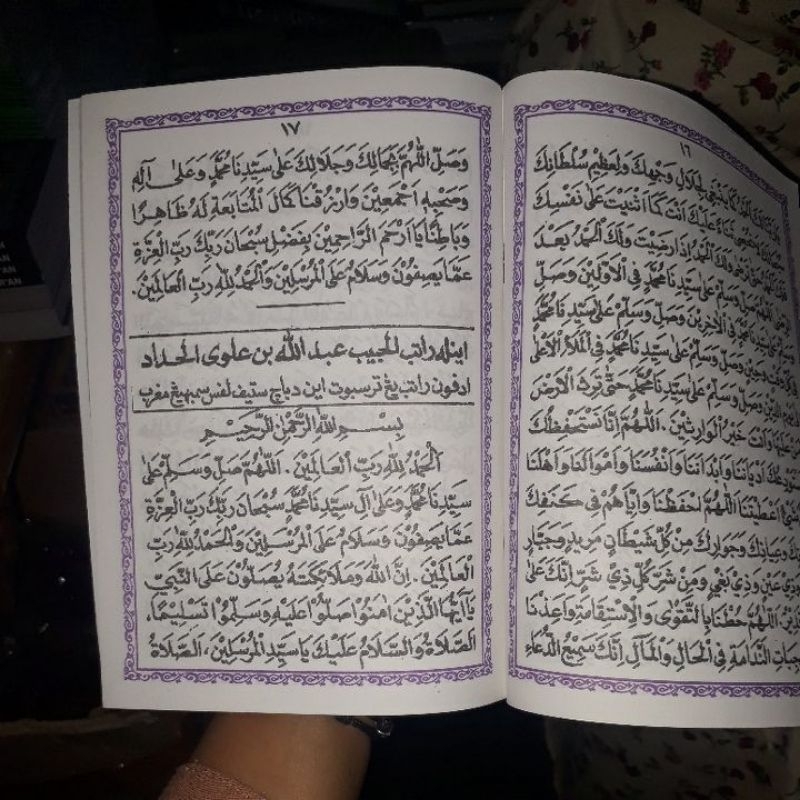 ١٦
كَمَا يَنْبَغِي لِجَلَالِ وَجْهِكَ وَلِعَظِيْمِ سُلْطَانِكَ
ثَنَاءً عَلَيْكَ اَنْتَ كَمَا اَثْنَيْتَ عَلَى نَفْسِكَ
اِذَا رَضِيْتَ وَلَكَ الْحَمْدُ بَعْدَ
وَسَلِّمْ عَلَى سَيِّدِنَا مُحَمَّدٍ فِي الْاَوَّلِيْنَ وَصَلِّ
سَيِّدِنَا مُحَمَّدٍ فِي الْاٰخِرِيْنَ وَصَلِّ وَسَلِّمْ عَلَى سَيِّدِنَا مُحَمَّدٍ
وَحِيْنٍ وَصَلِّ وَسَلِّمْ عَلَى سَيِّدِنَا مُحَمَّدٍ فِي الْمَلَأِ الْاَعْلَى
الدِّيْنِ وَصَلِّ وَسَلِّمْ عَلَى سَيِّدِنَا مُحَمَّدٍ حَتَّى تَرِثَ الْاَرْضَ
وَاَنْتَ خَيْرُ الْوَارِثِيْنَ. اَللّٰهُمَّ اِنَّا نَسْتَحْفِظُكَ
اَدْيَانَنَا وَاَبْدَانَنَا وَاَنْفُسَنَا وَاَمْوَالَنَا وَاَهْلَنَا
اَعْطَيْتَنَا اَللّٰهُمَّ احْفَظْنَا وَاِيَّاهُمْ فِي كَنَفِكَ
وَعِيَاذِكَ وَجِوَارِكَ مِنْ كُلِّ شَيْطَانٍ مَرِيْدٍ وَجَبَّارٍ
عَيْنٍ وَذِيْ بَغْيٍ وَمِنْ شَرِّ كُلِّ ذِيْ شَرٍّ اِنَّكَ عَلَى
اَللّٰهُمَّ حُطْنَا بِالتَّقْوٰى وَالْاِسْتِقَامَةِ وَاَعِذْنَا
النَّدَامَةِ فِي الْحَالِ وَالْمَآلِ اِنَّكَ سَمِيْعُ الدُّعَاءِ
١٧
وَصَلِّ اللّٰهُمَّ بِجَمَالِكَ وَجَلَالِكَ عَلَى سَيِّدِنَا مُحَمَّدٍ وَعَلَى اٰلِهِ
وَصَحْبِهِ اَجْمَعِيْنَ وَارْزُقْنَا كَمَالَ الْمُتَابَعَةِ لَهُ ظَاهِرًا
وَبَاطِنًا يَا اَرْحَمَ الرَّاحِمِيْنَ بِفَضْلِ سُبْحَانَ رَبِّكَ رَبِّ الْعِزَّةِ
عَمَّا يَصِفُوْنَ وَسَلَامٌ عَلَى الْمُرْسَلِيْنَ وَالْحَمْدُ لِلّٰهِ رَبِّ الْعَالَمِيْنَ.
اينله راتب الحبيب عبد الله بن علوى الحداد
ادفون راتب يڠ ترسبوت اين دباچ ستيف لفس سمبهيڠ مغرب
بِسْمِ اللّٰهِ الرَّحْمٰنِ الرَّحِيْمِ
اَلْحَمْدُ لِلّٰهِ رَبِّ الْعَالَمِيْنَ. اَللّٰهُمَّ صَلِّ وَسَلِّمْ عَلَى
سَيِّدِنَا مُحَمَّدٍ وَعَلَى اٰلِ سَيِّدِنَا مُحَمَّدٍ سُبْحَانَ رَبِّكَ رَبِّ الْعِزَّةِ
عَمَّا يَصِفُوْنَ وَسَلَامٌ عَلَى الْمُرْسَلِيْنَ وَالْحَمْدُ لِلّٰهِ رَبِّ
الْعَالَمِيْنَ. اِنَّ اللّٰهَ وَمَلَائِكَتَهُ يُصَلُّوْنَ عَلَى النَّبِيِّ
يَآاَيُّهَا الَّذِيْنَ اٰمَنُوْا صَلُّوْا عَلَيْهِ وَسَلِّمُوْا تَسْلِيْمًا،
اَلصَّلَاةُ وَالسَّلَامُ عَلَيْكَ يَا سَيِّدَ الْمُرْسَلِيْنَ، اَلصَّلَاةُ